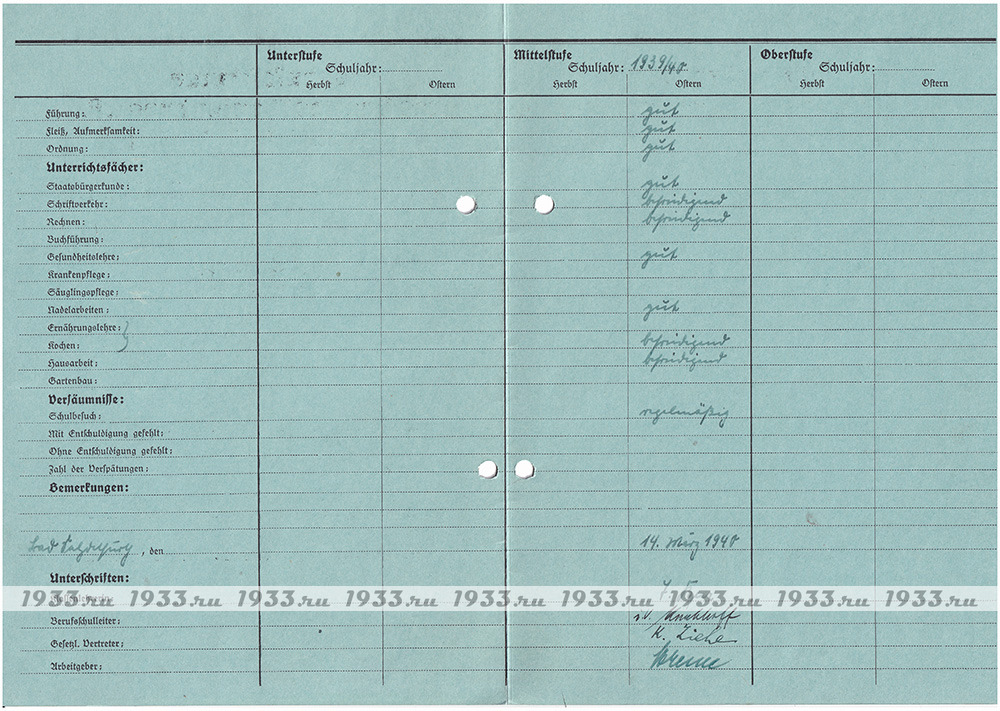 Unterstufe Mittelstufe Oberstufe
Schuljahr: Schuljahr: 1939/40 Schuljahr:
Herbst Ostern Herbst Ostern Herbst Ostern
Führung: gut
Fleiß, Aufmerksamkeit: gut
Ordnung: gut
Unterrichtsfächer:
Staatsbürgerkunde: gut
Schriftverkehr: befriedigend
Rechnen: befriedigend
Buchführung:
Gesundheitslehre: gut
Krankenpflege:
Säuglingspflege:
Nadelarbeiten: gut
Ernährungslehre:
Kochen: befriedigend
Hausarbeit: befriedigend
Gartenbau:
Versäumnisse:
Schulbesuch: regelmäßig
Mit Entschuldigung gefehlt:
Ohne Entschuldigung gefehlt:
Zahl der Verspätungen:
Bemerkungen:
Bad , den 14. März 1940
Unterschriften:
1933.ru 1933.ru 1933.ru 1933.ru 1933.ru 1933.ru 1933.ru 1933.ru 1933.ru
Berufsschulleiter: i.V.
Gesetzl. Vertreter: K. Ziehe
Arbeitgeber: